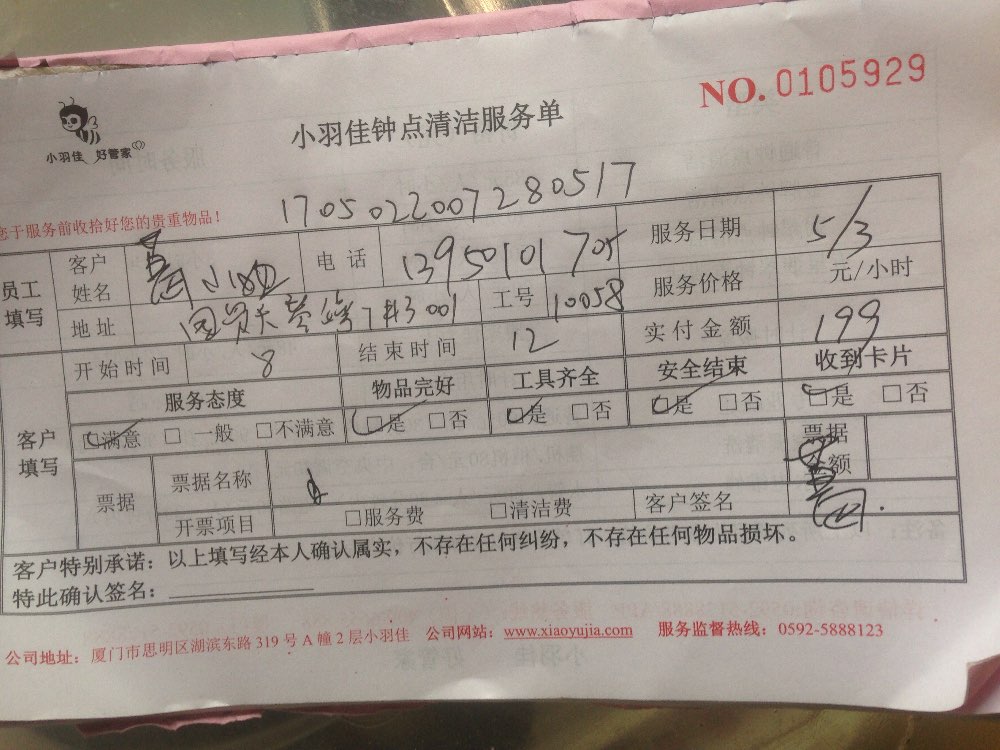 NO. 0105929
小羽佳 好管家
小羽佳钟点清洁服务单
1705022007280517
您于服务前收拾好您的贵重物品！
员工填写 客户姓名 小姐 电话 13950101705 服务日期 5/3
地址 7#3001 工号 10058 服务价格 元/小时
客户填写 开始时间 8 结束时间 12 实付金额 199
服务态度 物品完好 工具齐全 安全结束 收到卡片
☑满意 □一般 □不满意 ☑是 □否 ☑是 □否 ☑是 □否 ☑是 □否
票据 票据名称 票据金额
开票项目 □服务费 □清洁费 客户签名
客户特别承诺：以上填写经本人确认属实，不存在任何纠纷，不存在任何物品损坏。
特此确认签名：
公司地址：厦门市思明区湖滨东路 319 号 A 幢 2 层小羽佳 公司网站：www.xiaoyujia.com 服务监督热线：0592-5888123